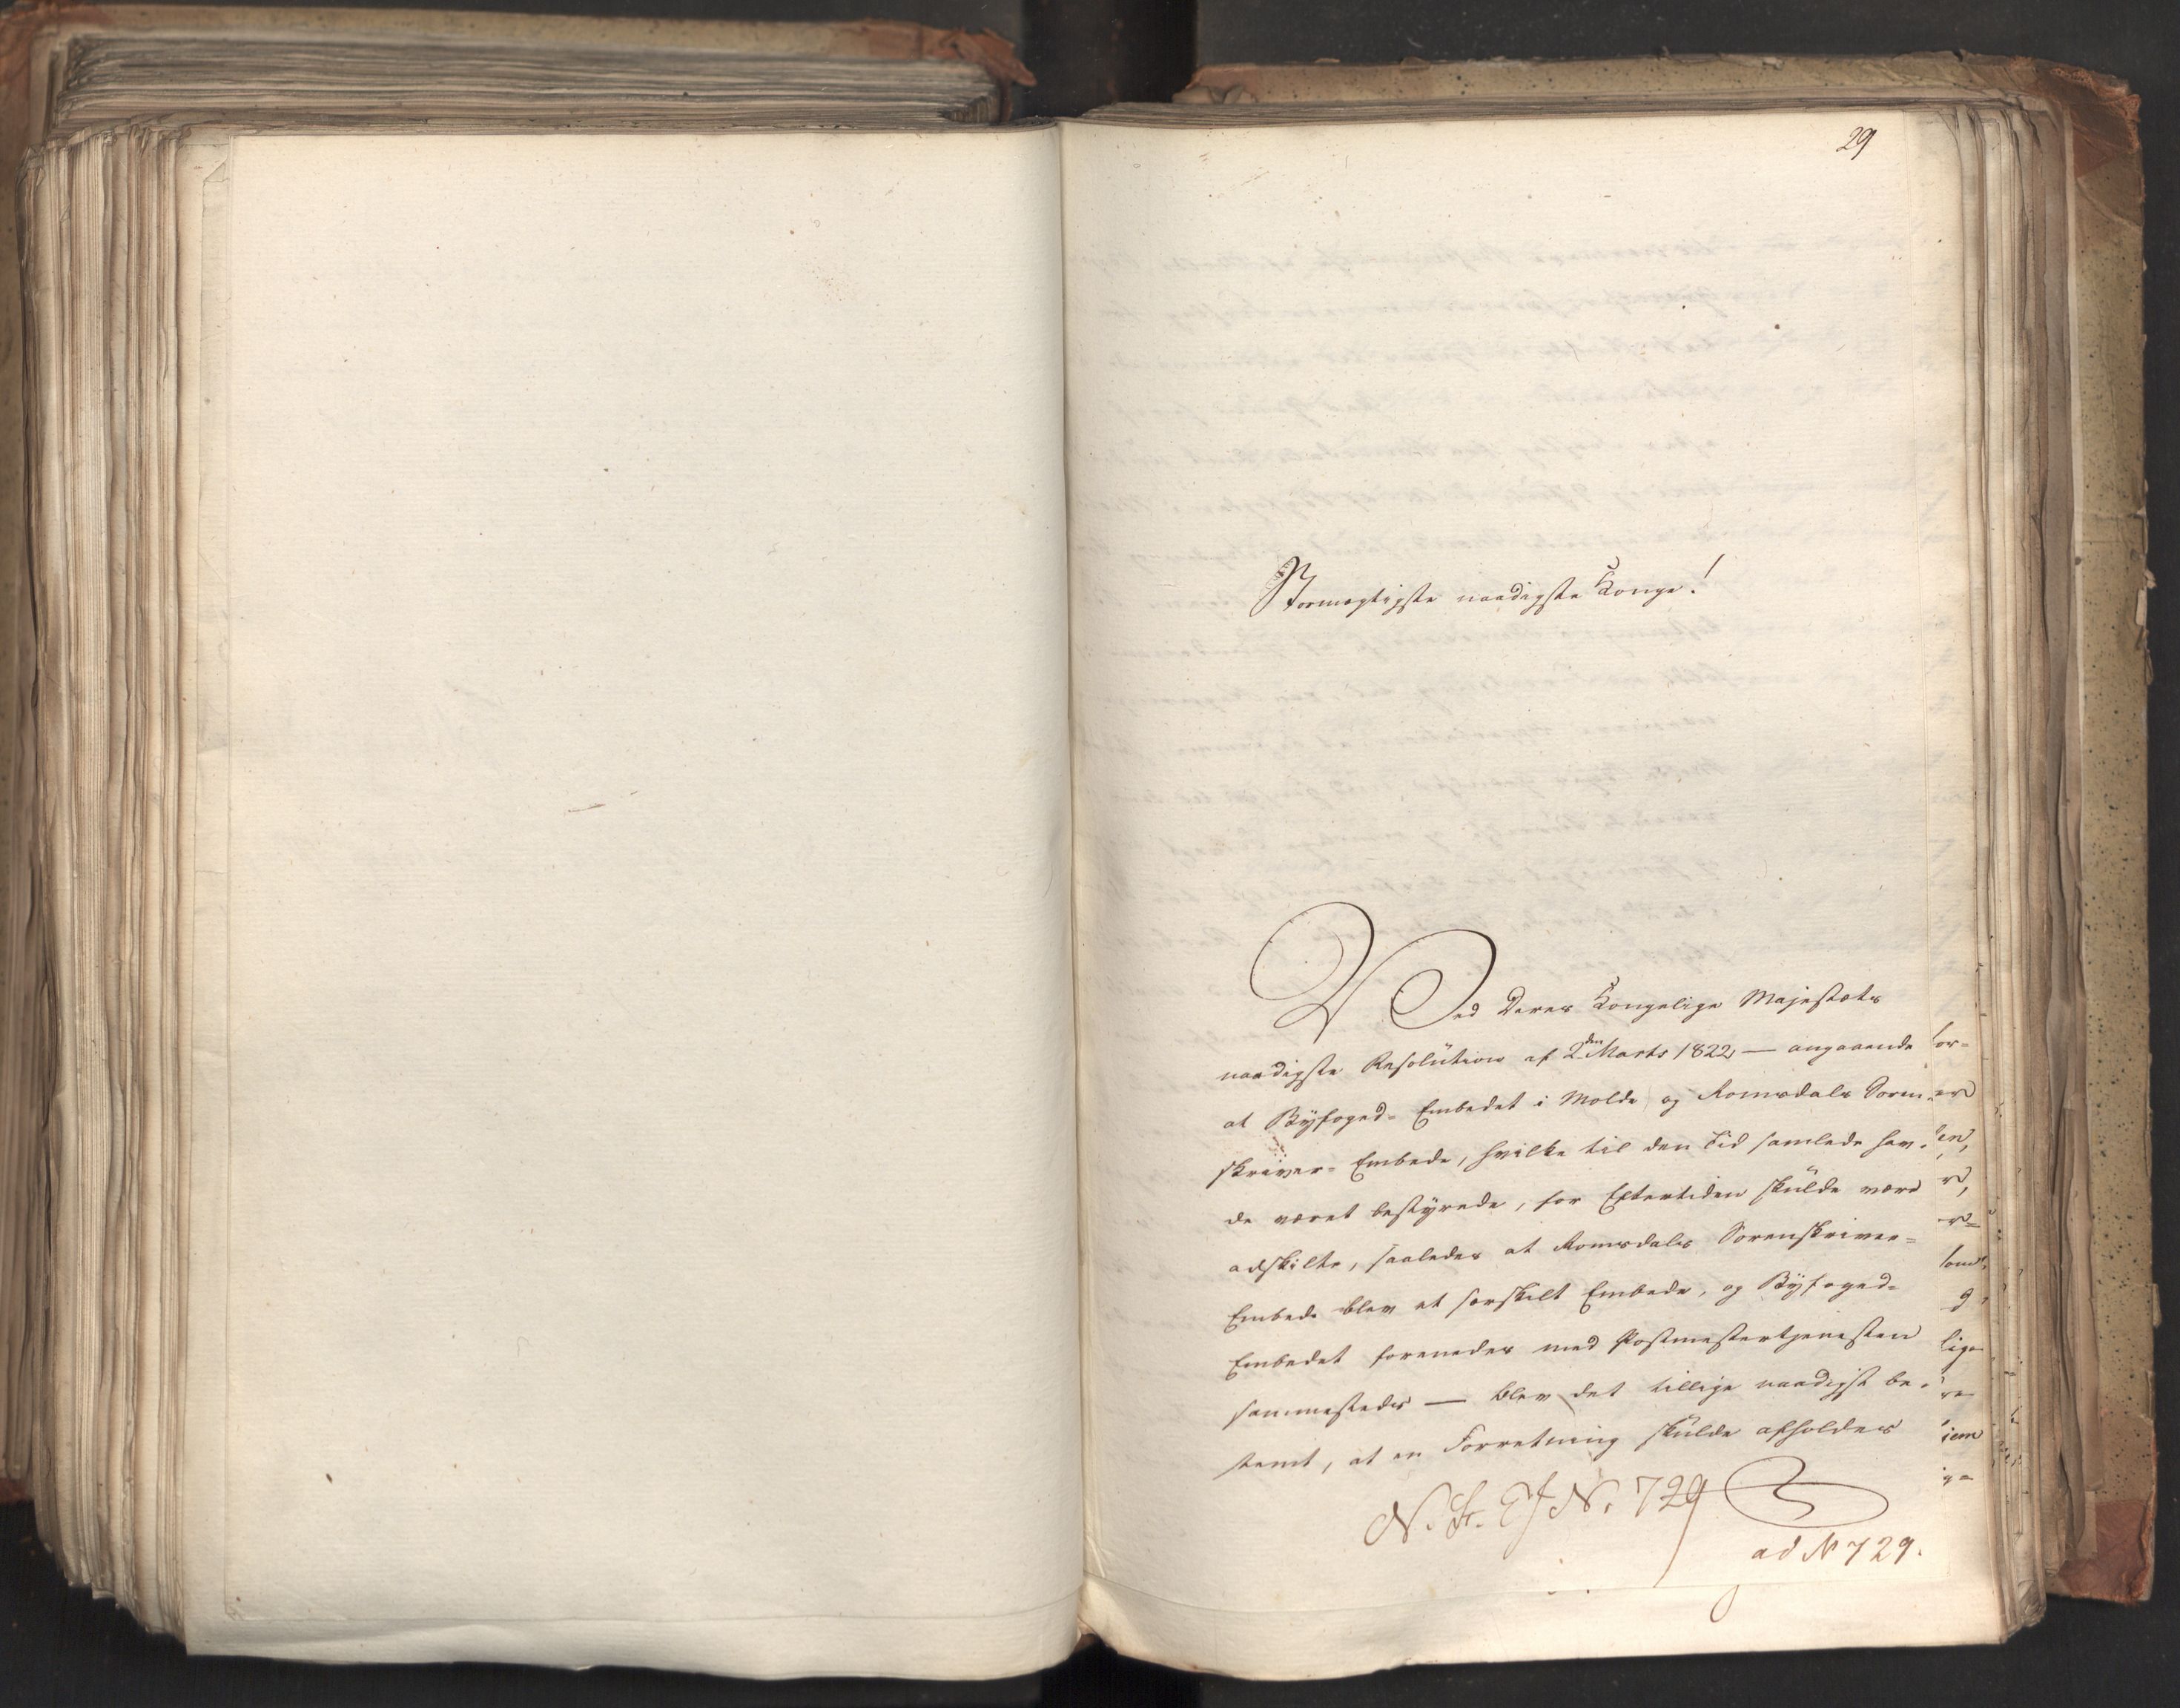 29
Stormægtigste naadigste Konge!
Ved Deres Kongelige Majestæts
naadigste Resolution af 2den Marts 1822 — angaaende
at Byfoged-Embedet i Molde og Romsdals Soren-
skriver-Embede, hvilke til den Tid samlede hav-
de været bestyrede, for Eftertiden skulde være
adskilte, saaledes at Romsdals Sorenskriver-
Embede blev et særskilt Embede, og Byfoged-
Embedet forenedes med Postmestertjenesten
sammesteds — blev det tillige naadigst be-
stemt, at en Forretning skulde afholdes
No. 729
ad No 729.